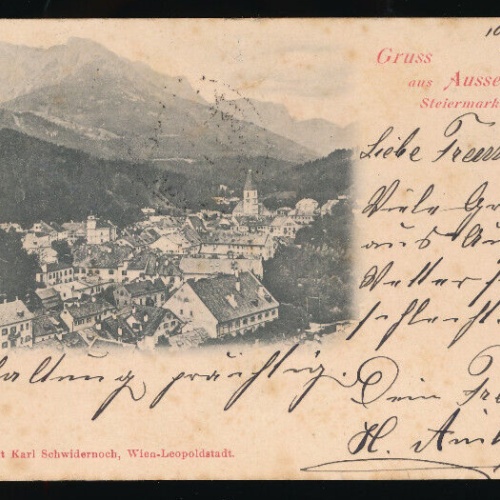 10
Gruss
aus Ausse
Steiermark
Liebe Freun
Viele Gr
aus Au
Wetter
schlecht
altung prächtig.
Dein Fre
H.
t Karl Schwidernoch, Wien-Leopoldstadt.